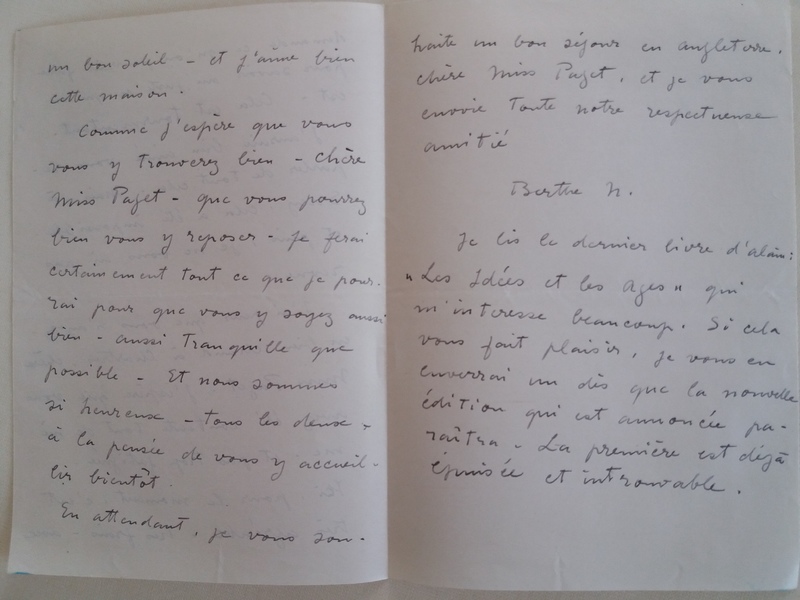 un bon soleil - et j'aime bien
cette maison.
Comme j'espère que vous
vous y trouverez bien - chère
Miss Paget - que vous pourrez
bien vous y reposer - Je ferai
certainement tout ce que je pour-
rai pour que vous y soyez aussi
bien - aussi tranquille que
possible - Et nous sommes
si heureux - tous les deux,
à la pensée de vous y accueil-
lir bientôt.
En attendant, je vous sou-
haite un bon séjour en angleterre,
chère Miss Paget, et je vous
envoie toute notre respectueuse
amitié
Berthe N.
Je lis le dernier livre d'alain:
"Les Idées et les Ages" qui
m'intéresse beaucoup. Si cela
vous fait plaisir, je vous en
enverrai un dès que la nouvelle
édition qui est annoncée pa-
raîtra - La première est déjà
épuisée et introuvable.